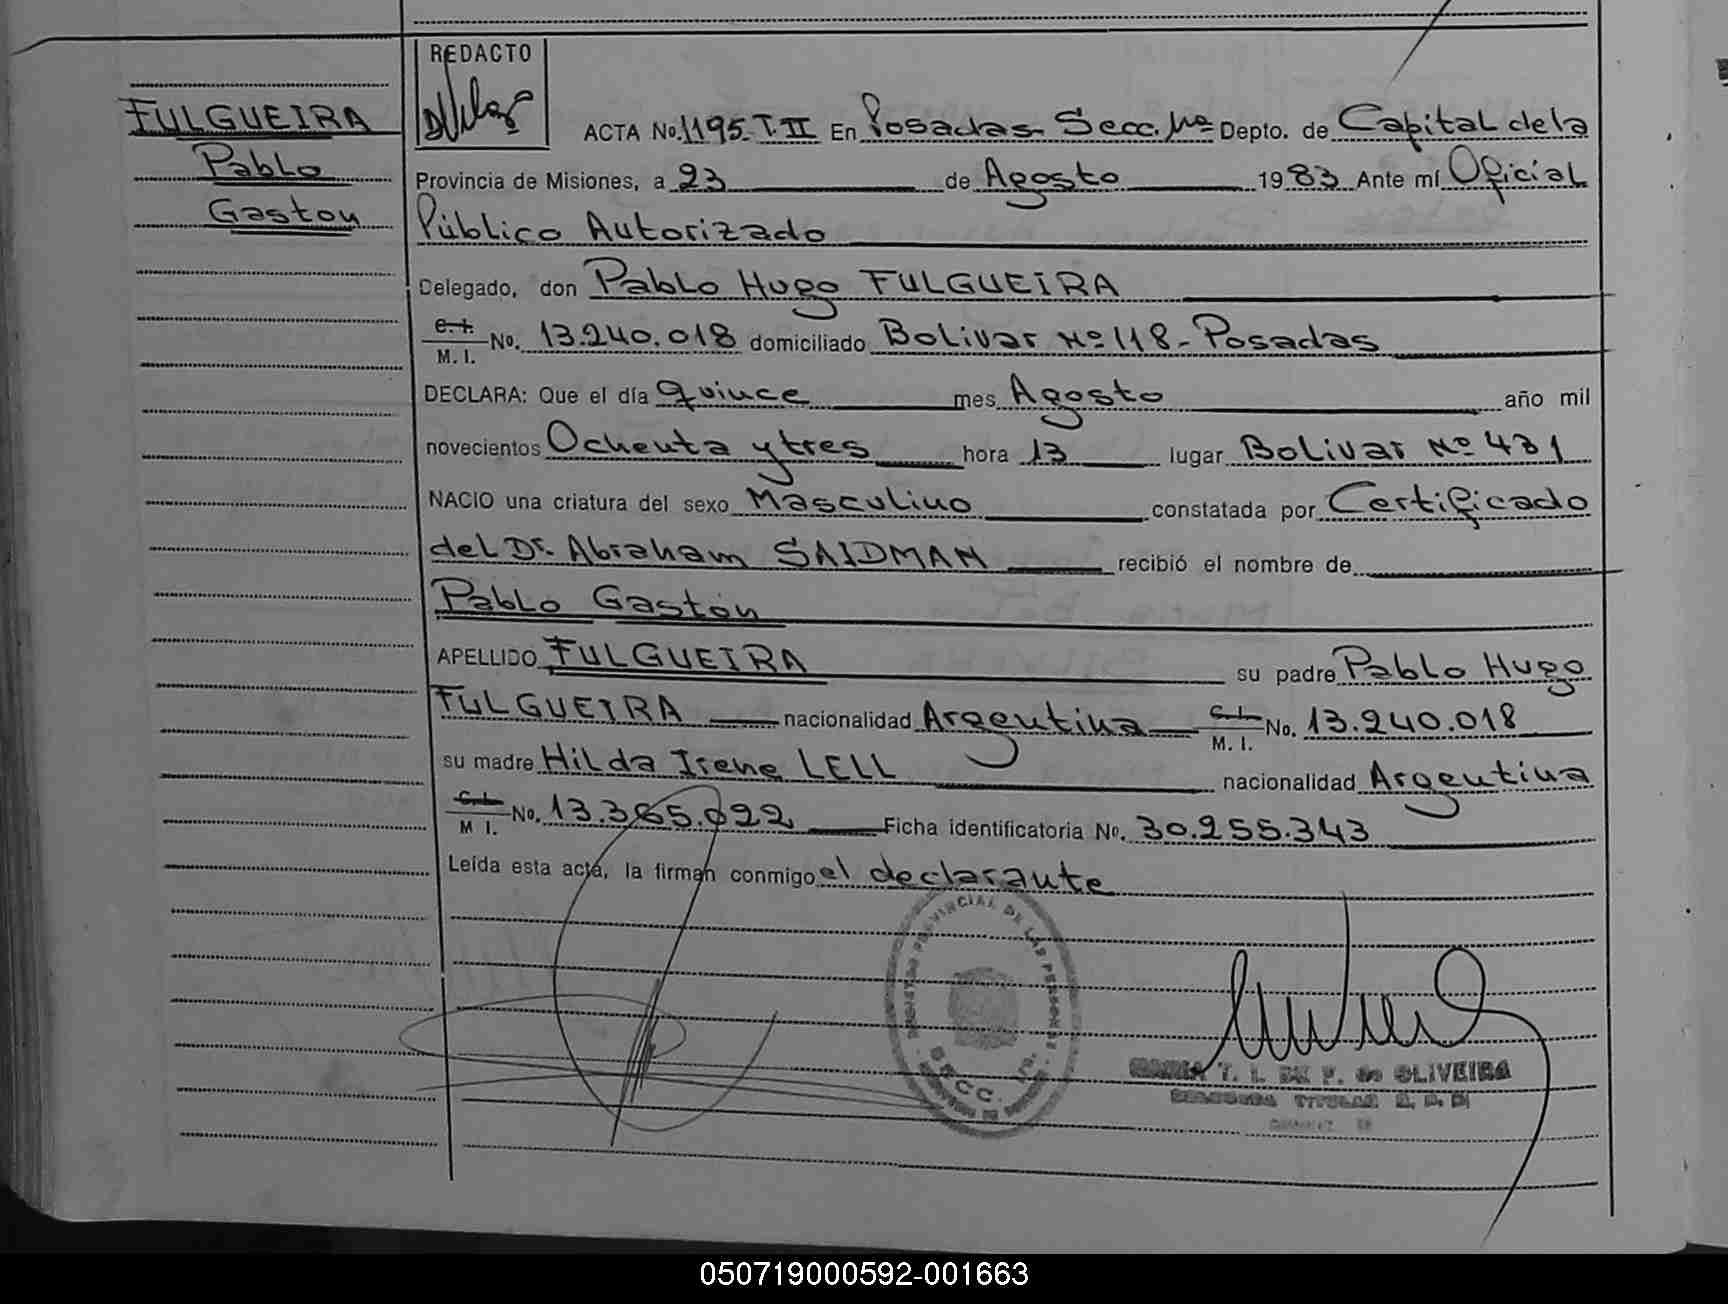 REDACTO
FULGUEIRA
Pablo
Gaston
ACTA No. 1195 T.II En Posadas Secc. 1ra Depto. de Capital de la
Provincia de Misiones, a 23 de Agosto 1983 Ante mí Oficial
Público Autorizado
Delegado, don Pablo Hugo FULGUEIRA
C. I.
M. I. No. 13.240.018 domiciliado Bolivar Nº 118 - Posadas
DECLARA: Que el día quince mes Agosto año mil
novecientos Ochenta y tres hora 13 lugar Bolivar Nº 431
NACIO una criatura del sexo Masculino constatada por Certificado
del Dr. Abraham SAIDMAN recibió el nombre de
Pablo Gastón
APELLIDO FULGUEIRA su padre Pablo Hugo
FULGUEIRA nacionalidad Argentina C. I. No. 13.240.018
M. I.
su madre Hilda Irene LELL nacionalidad Argentina
C. I.
M I. No. 13.365.022 Ficha identificatoria No. 30.255.343
Leída esta acta, la firman conmigo el declarante
REGISTRO PROVINCIAL DE LAS PERSONAS
SECC. 1ra.
MARIA T. L. DE P. de OLIVEIRA
DELEGADA TITULAR R. P. P.
050719000592-001663